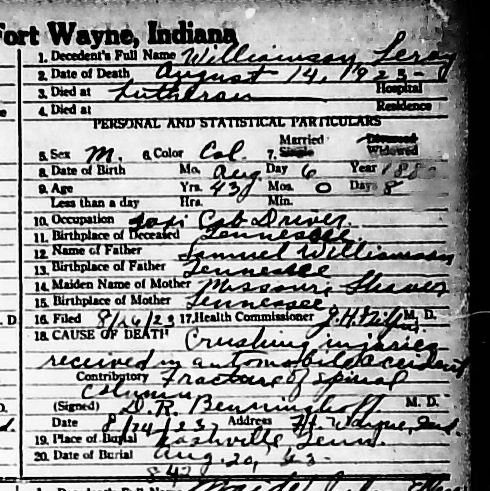 Fort Wayne, Indiana
1. Decedent's Full Name Williamson, Leroy
2. Date of Death August 14, 1923
3. Died at Lutheran Hospital
4. Died at Residence
PERSONAL AND STATISTICAL PARTICULARS
5. Sex M. 6. Color Col. 7. Married Single Divorced Widowed
8. Date of Birth Mo. Aug Day 6 Year 188
9. Age Yrs. 43 Mos. 0 Days 8
Less than a day Hrs. Min.
10. Occupation Taxi Cab Driver.
11. Birthplace of Deceased Tennessee
12. Name of Father Samuel Williamson
13. Birthplace of Father Tennessee
14. Maiden Name of Mother Missouri Shaver
15. Birthplace of Mother Tennessee
16. Filed 8/26/23 17. Health Commissioner J.H. M. D.
18. CAUSE OF DEATH Crushing injuries
received in automobile accident
Contributory Fracture of spinal
column
(Signed) D.R. Benninghoff M. D.
Date 8/24/23 Address Ft. Wayne, Ind.
19. Place of Burial Nashville, Tenn.
20. Date of Burial Aug. 20, 23-
842